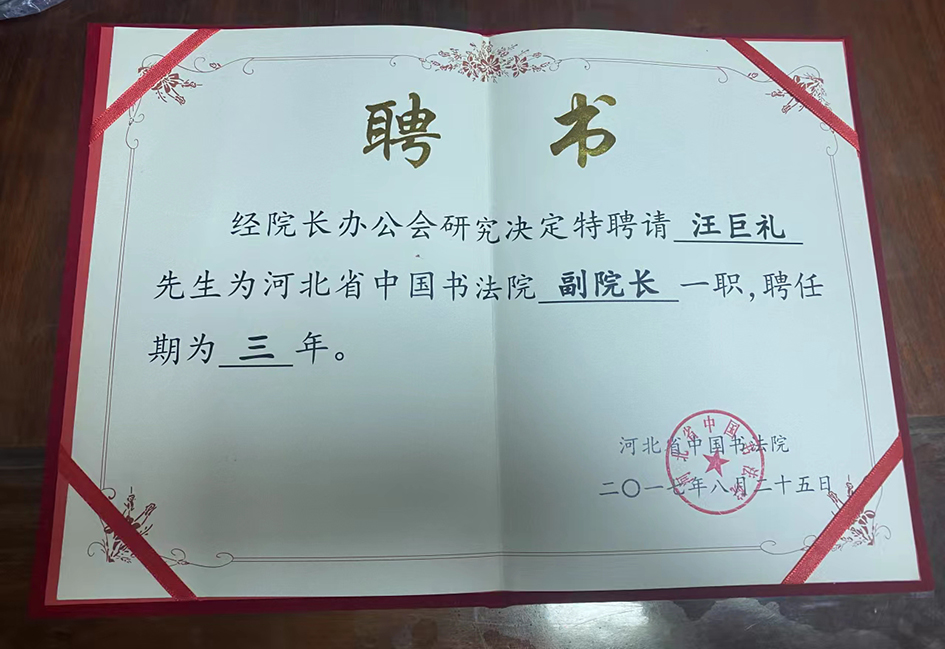 聘书
经院长办公会研究决定特聘请 汪巨礼
先生为河北省中国书法院 副院长 一职,聘任
期为 三 年。
河北省中国书法院
二〇一七年八月二十五日
河北省中国书法院